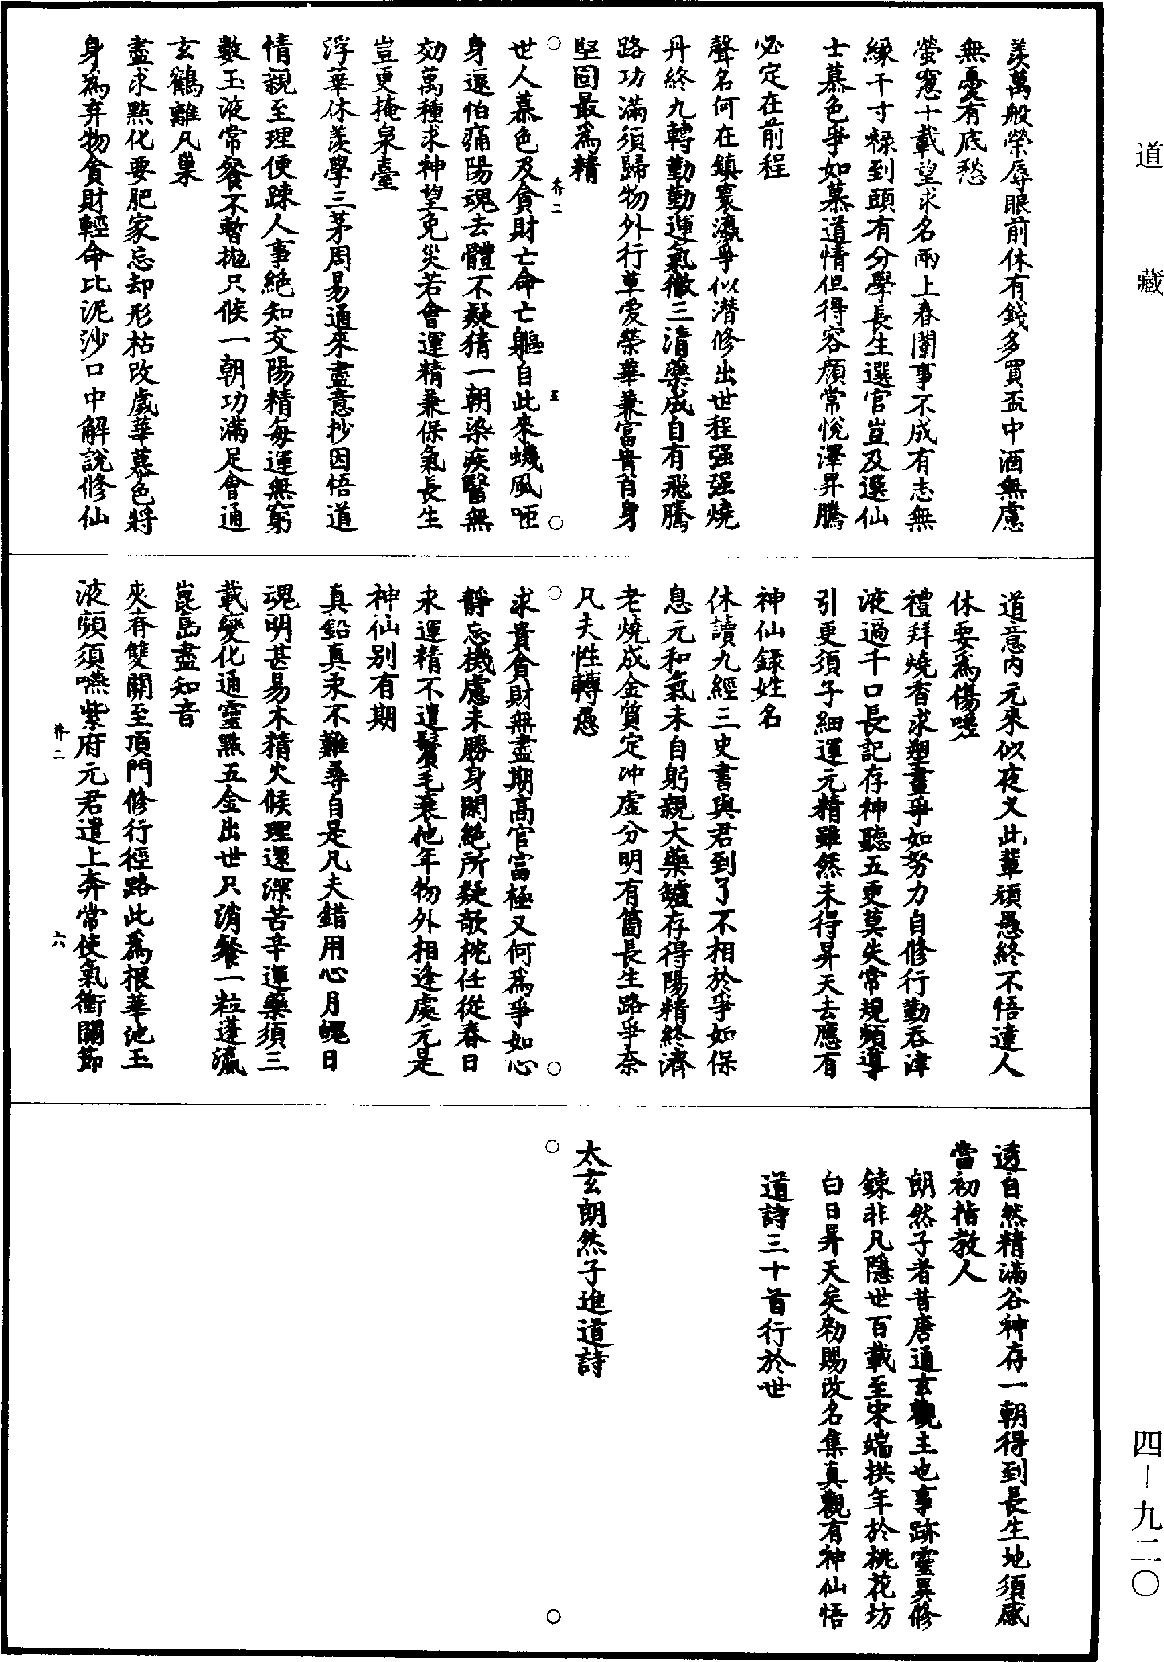 道藏
羨萬般榮辱眼前休有錢多買盃中酒無慮
無憂有底愁
螢窻十載望求名兩上春闈事不成有志無
緣干寸祿到頭有分學長生選官豈及選仙
士慕色爭如慕道情但得容顏常悅澤昇騰
必定在前程
聲名何在鎮寰瀛爭似潛修出世程强强燒
丹終九轉勤勤運氣徹三清藥成自有飛騰
路功滿須歸物外行草愛榮華兼富貴百身
堅固最爲精
世人慕色及貪財亡命亡軀自此來蟣風咂
身還怕痛陽魂去體不疑猜一朝染疾醫無
効萬種求神望免災若會運精兼保氣長生
豈更掩泉臺
浮華休羨學三茅周易通來盡意抄因悟道
情親至理便踈人事絶知交陽精每運無窮
數玉液常餐不暫抛只候一朝功滿足會通
玄鶴離凡巢
盡求點化要肥家忘却形枯改歲華慕色將
身爲弃物貪財輕命比泥沙口中解說修仙
道意内元來似夜叉此輩頑愚終不悟達人
休要爲傷嗟
禮拜燒香求塑畫爭如努力自修行勤吞津
液過千口長記存神聽五更莫失常規頻導
引更須子細運元精雖然未得昇天去應有
神仙録姓名
休讀九經三史書與君到了不相於爭如保
息元和氣未自躬親大藥鑪存得陽精終濟
老燒成金質定冲虚分明有箇長生路爭奈
凡夫性轉愚
求貴貪財無盡期高官富極又何爲爭如心
靜忘機慮未勝身閑絶所疑欹枕任從春日
永運精不遣鬢毛衰他年物外相逢處元是
神仙别有期
真鉛真汞不難尋自是凡夫錯用心月魄日
魂明甚易木精火候理還深苦辛運藥須三
載變化通靈點五金出世只消餐一粒蓬瀛
崑島盡知音
夾脊雙關至頂門修行徑路此爲根華池玉
液頻須嚥紫府元君遣上奔常使氣衝關節
透自然精滿谷神存一朝得到長生地須感
當初指教人
朗然子者昔唐通玄觀主也事跡靈異修
鍊非凡隱世百載至宋端拱年於桃花坊
白日昇天矣勑賜改名集真觀有神仙悟
道詩三十首行於世
太玄朗然子進道詩
四—九二〇